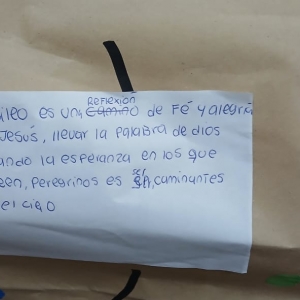 REFLEXIÓN
ileo es una camino de Fé y alegria
Jesús, llevar la palabra de dios
ando la esperanza en los que
een, peregrinos es ser caminantes
el cielo